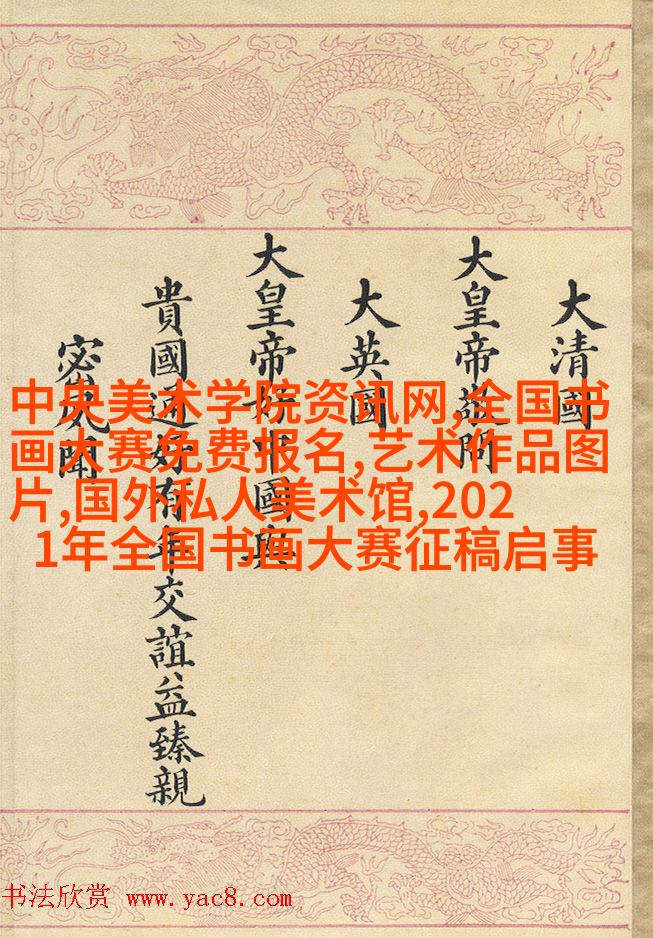 大清國
大皇帝敬問
大英國
大皇帝好中國與
貴國通好有年交誼益臻親
密夙聞
中央美术学院资讯网,全国书
画大赛免费报名,艺术作品图
片,国外私人美术馆,202
1年全国书画大赛征稿启事
书法欣赏 www.yac8.com